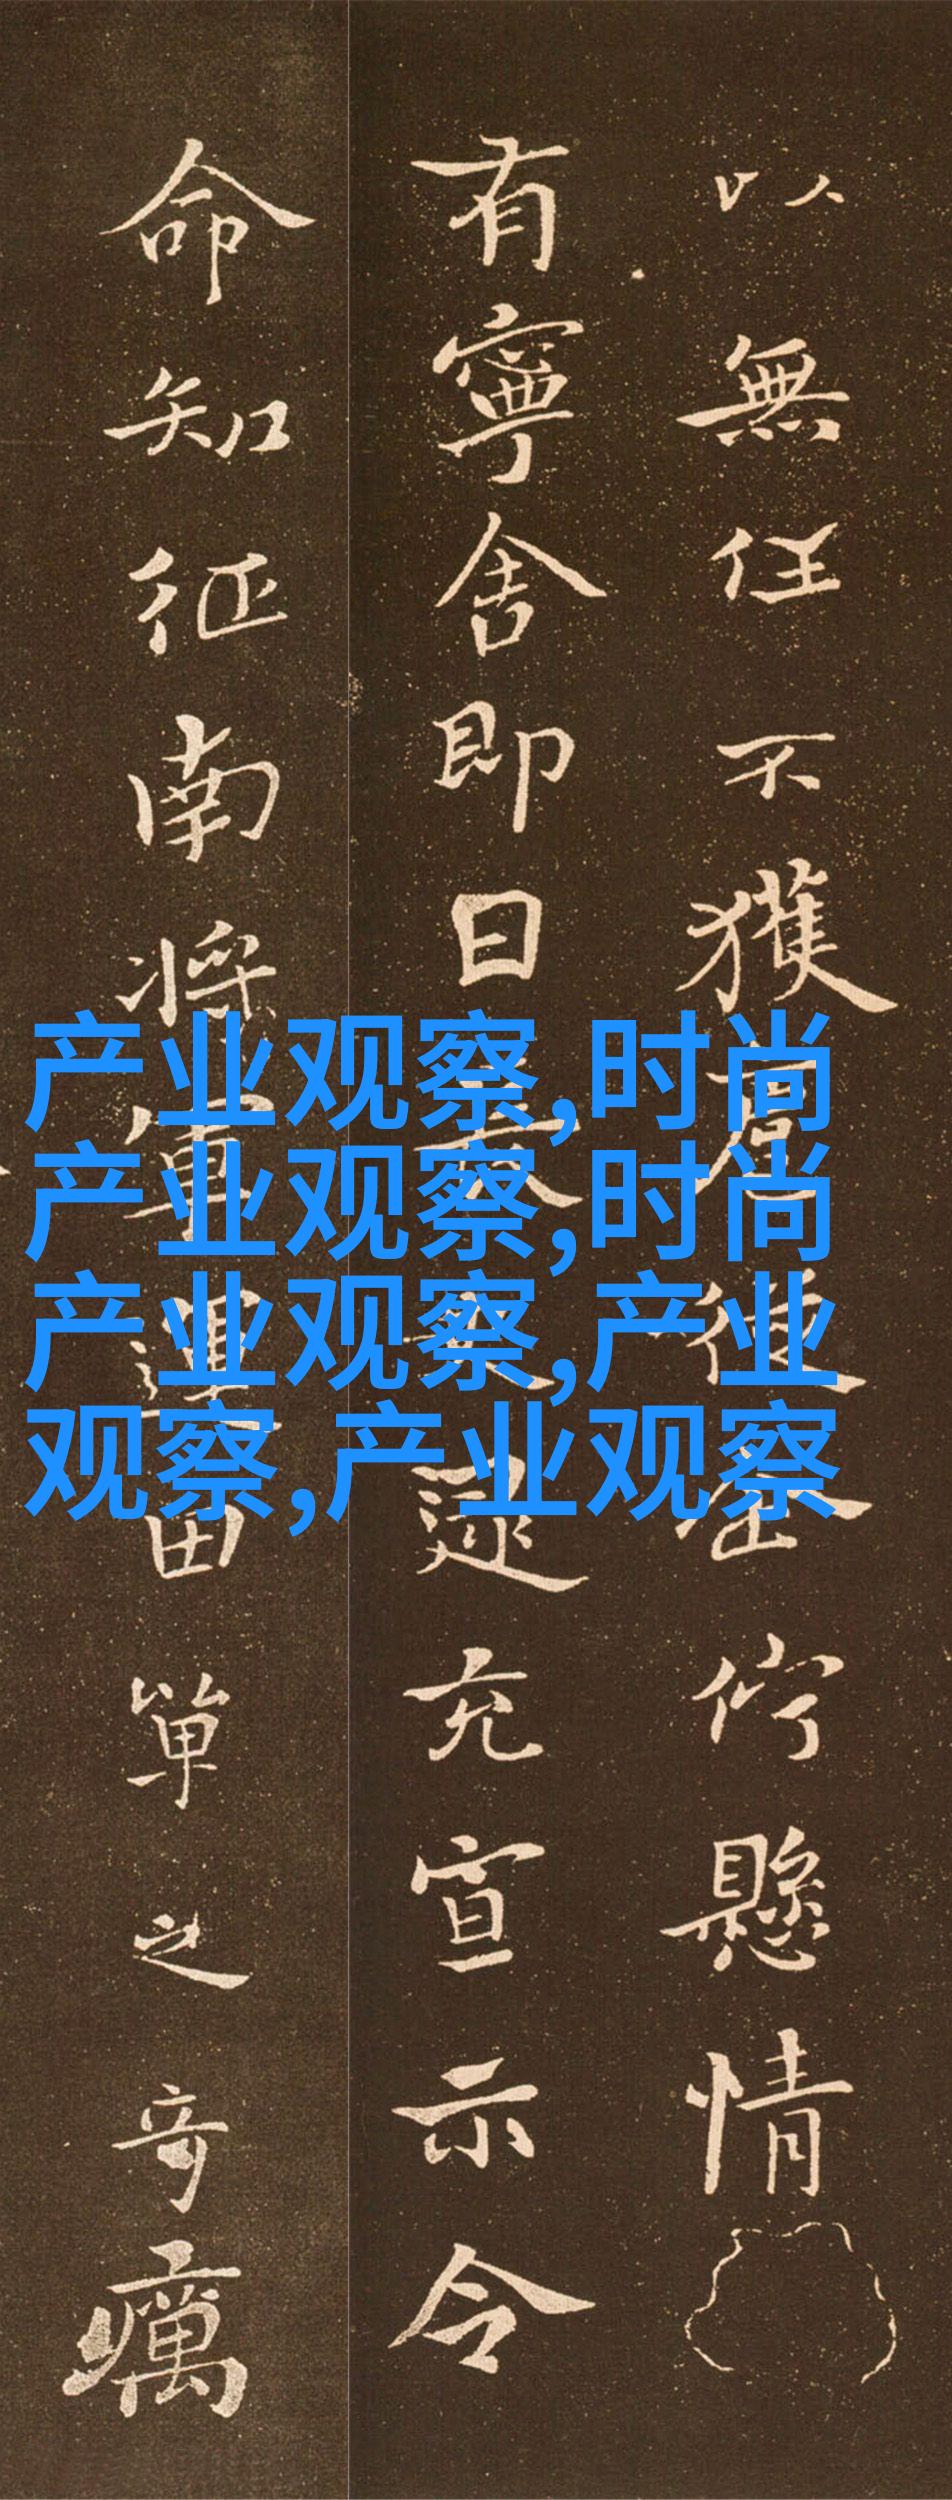 以無任不獲
有寧舍即日
命知征南將軍運田單之奇厲
使
佇懸情
充宣示令
产业观察,时尚
产业观察,时尚
产业观察,产业
观察,产业观察